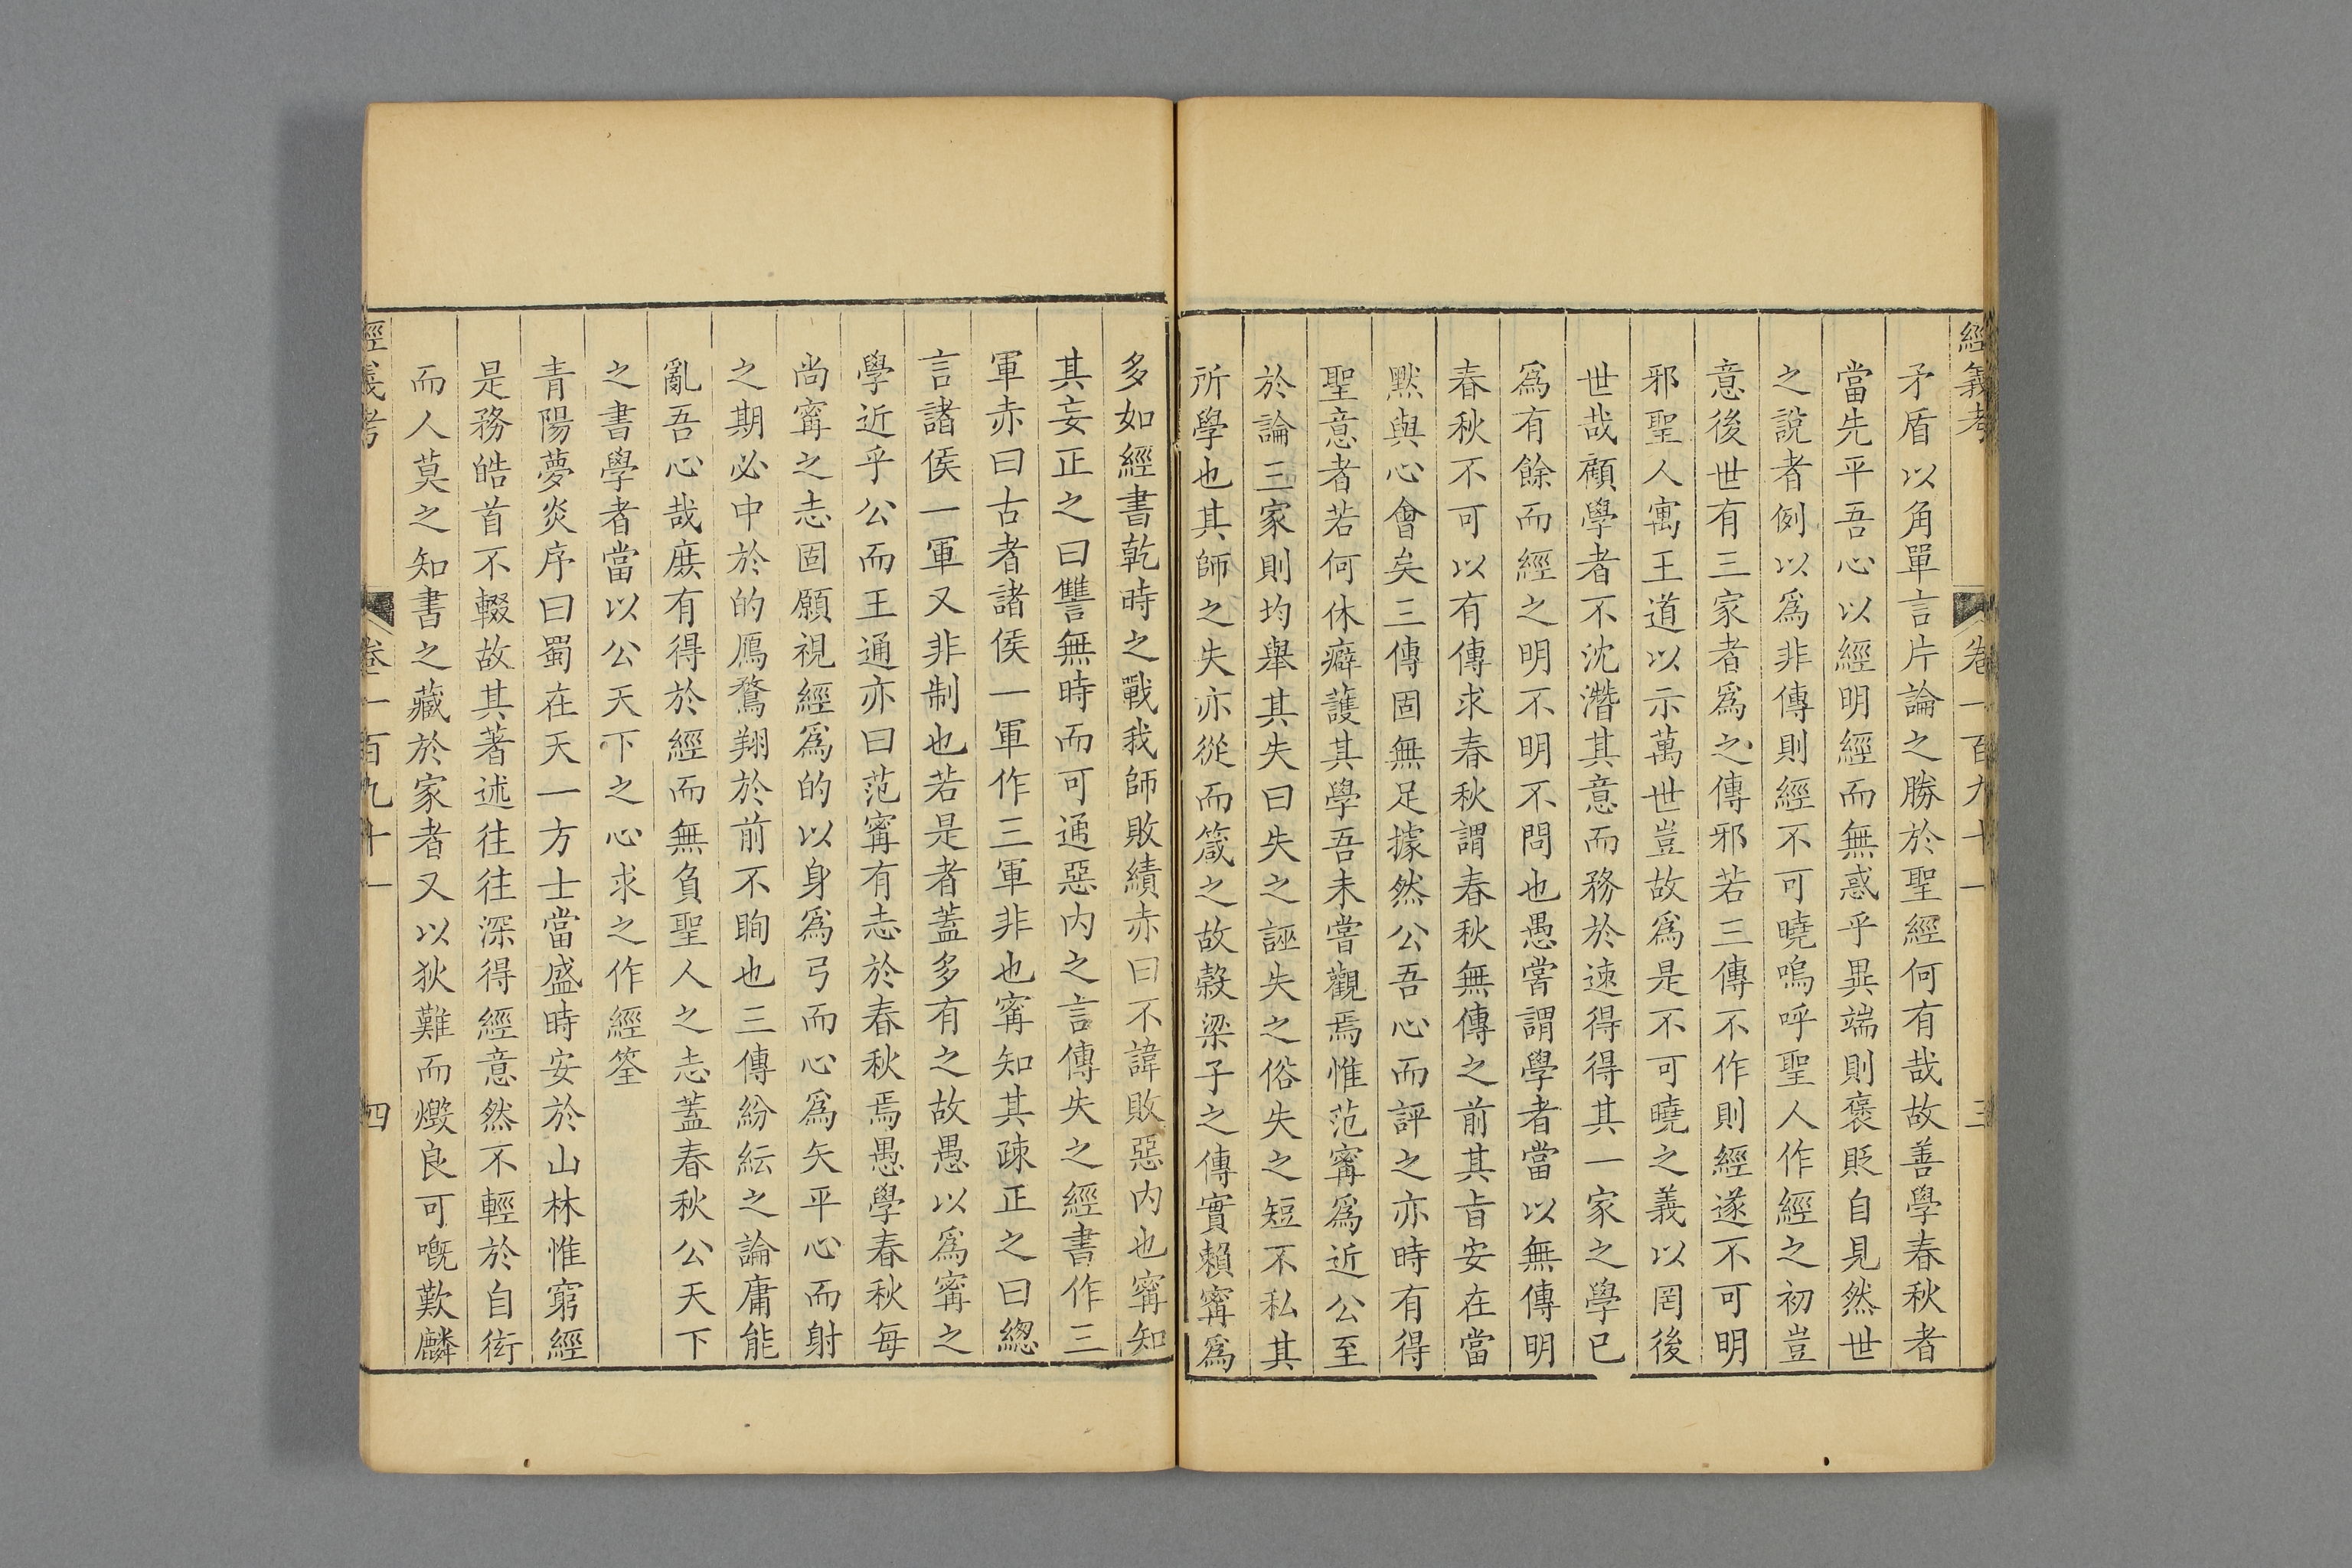 經義考 卷一百九十一 三
矛盾以角單言片論之勝於聖經何有哉故善學春秋者
當先平吾心以經明經而無惑乎異端則褒貶自見然世
之說者例以爲非傳則經不可曉嗚呼聖人作經之初豈
意後世有三家者爲之傳邪若三傳不作則經遂不可明
邪聖人寓王道以示萬世豈故爲是不可曉之義以罔後
世哉顧學者不沈潛其意而務於速得得其一家之學已
爲有餘而經之明不明不問也愚嘗謂學者當以無傳明
春秋不可以有傳求春秋謂春秋無傳之前其旨安在當
默與心會矣三傳固無足據然公吾心而評之亦時有得
聖意者若何休癖護其學吾未嘗觀焉惟范甯爲近公至
於論三家則均舉其失曰失之誣失之俗失之短不私其
所學也其師之失亦從而箴之故穀梁子之傳實賴甯爲
多如經書乾時之戰我師敗績赤曰不諱敗惡内也甯知
其妄正之曰讐無時而可通惡内之言傳失之經書作三
軍赤曰古者諸侯一軍作三軍非也甯知其疎正之曰緫
言諸侯一軍又非制也若是者蓋多有之故愚以爲甯之
學近乎公而王通亦曰范甯有志於春秋焉愚學春秋每
尚甯之志固願視經爲的以身爲弓而心爲矢平心而射
之期必中於的鴈鶩翔於前不眴也三傳紛紜之論庸能
亂吾心哉庶有得於經而無負聖人之志蓋春秋公天下
之書學者當以公天下之心求之作經筌
青陽夢炎序曰蜀在天一方士當盛時安於山林惟窮經
是務皓首不輟故其著述往往深得經意然不輕於自衒
而人莫之知書之藏於家者又以狄難而燬良可嘅歎麟
經義考 卷一百九十一 四